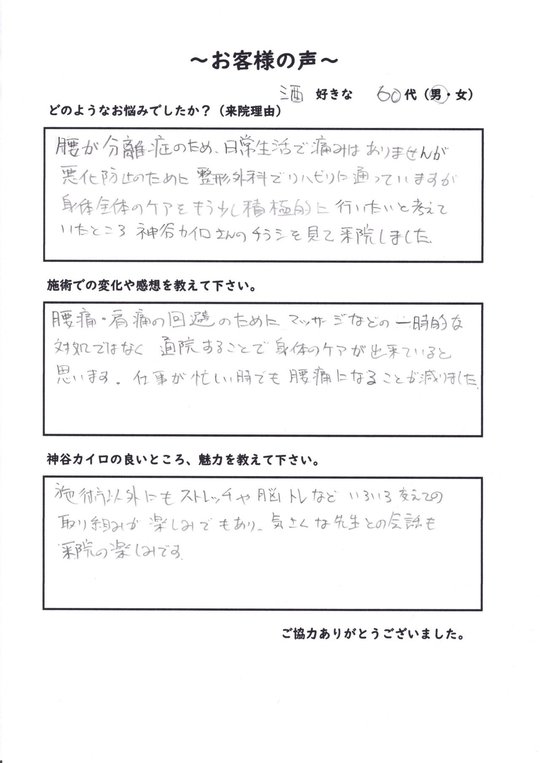 ～お客様の声～
酒 好きな 60代（男・女）
どのようなお悩みでしたか？（来院理由）
腰が分離症のため、日常生活で痛みはありませんが
悪化防止のために整形外科でリハビリに通っていますが
身体全体のケアをもう少し積極的に行いたいと考えて
いたところ神谷カイロさんのチラシを見て来院しました。
施術での変化や感想を教えて下さい。
腰痛・肩痛の回避のためにマッサージなどの一時的な
対処ではなく 通院することで身体のケアが出来ていると
思います。仕事が忙しい時でも腰痛になることが減りました。
神谷カイロの良いところ、魅力を教えて下さい。
施術以外にもストレッチや脳トレなどいろいろ変えての
取り組みが楽しみでもあり、気さくな先生との会話も
来院の楽しみです
ご協力ありがとうございました。